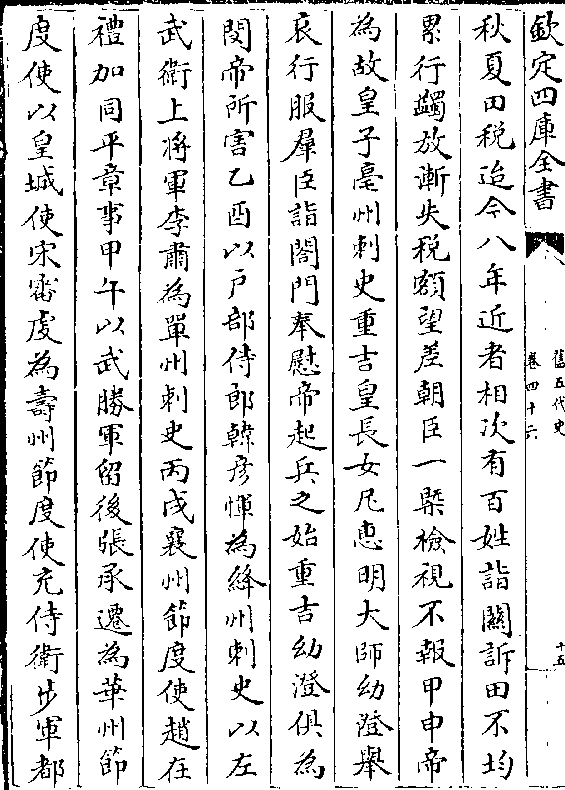 欽定四庫全書
舊五代史
卷四十六
十五
秋夏田稅迨今八年近者相次有百姓詣闕訴田不均
累行蠲放漸失稅額望差朝臣一槩檢視不報甲申帝
為故皇子亳州刺史重吉皇長女尼惠明大師幼澄舉
哀行服羣臣詣閤門奉慰帝起兵之始重吉幼澄俱為
閔帝所害乙酉以戶部侍郎韓彥惲為絳州刺史以左
武衛上將軍李肅為單州刺史丙戌襄州節度使趙在
禮加同平章事甲午以武勝軍留後張承遷為華州節
度使以皇城使宋審虔為壽州節度使充侍衛步軍都